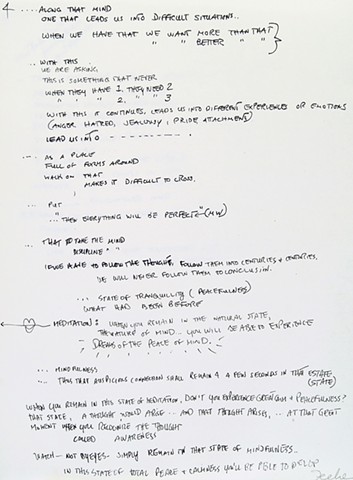 4 .... ALONG THAT MIND
ONE THAT LEADS US INTO DIFFICULT SITUATIONS..
WHEN WE HAVE THAT WE WANT MORE THAN THAT
" " " " BETTER " "
.. WITH THIS
WE ARE ASKING
THIS IS SOMETHING THAT NEVER
WHEN THEY HAVE 1, THEY NEED 2
" " " 2, " " 3
WITH THIS IT CONTINUES, LEADS US INTO DIFFERENT EXPERIENCES OR EMOTIONS
(ANGER HATRED, JEALOUSY, PRIDE ATACHMENT)
LEAD US INTO - - - - - - - - - - .
.... AS A PLACE
FULL OF AROUND
WALK ON THAT
MAKES IT DIFFICULT TO CROSS.
... PUT
... "THEN EVERYTHING WILL BE PERFECT"
... THAT TO TAME THE MIND
DISCIPLINE " "
IF WE ARE TO FOLLOW THE THOUGHTS, FOLLOW THEM INTO CENTURIES + CENTURIES.
WE WILL NEVER FOLLOW THEM TO CONCLUSION.
... STATE OF TRANQUILITY (PEACEFULNESS)
WHAT HAD BEEN BEFORE
MEDITATION: WHEN YOU REMAIN IN THE NATURAL STATE,
THE NATURE OF MIND... YOU WILL BE ABLE TO EXPERIENCE
OF THE PEACE OF MIND.
... MINDFULNESS
... THEN THAT AUSPICIOUS CONNECTION SHALL REMAIN A FEW SECONDS IN THAT ESTATE,
(STATE)
WHEN YOU REMAIN IN THIS STATE OF MEDITATION, DON'T YOU EXPERIENCE GREAT CALM + PEACEFULNESS?
THAT STATE, A THOUGHT WOULD ARISE... AND THAT THOUGHT ARISES, ... AT THAT GREAT
MOMENT WHEN YOU RECOGNIZE THE THOUGHT
CALLED AWARENESS
WATCH— NOT BY EYES- SIMPLY REMAIN IN THAT STATE OF MINDFULNESS..
IN THIS STATE OF TOTAL PEACE + CALMNESS YOU'LL BE TO